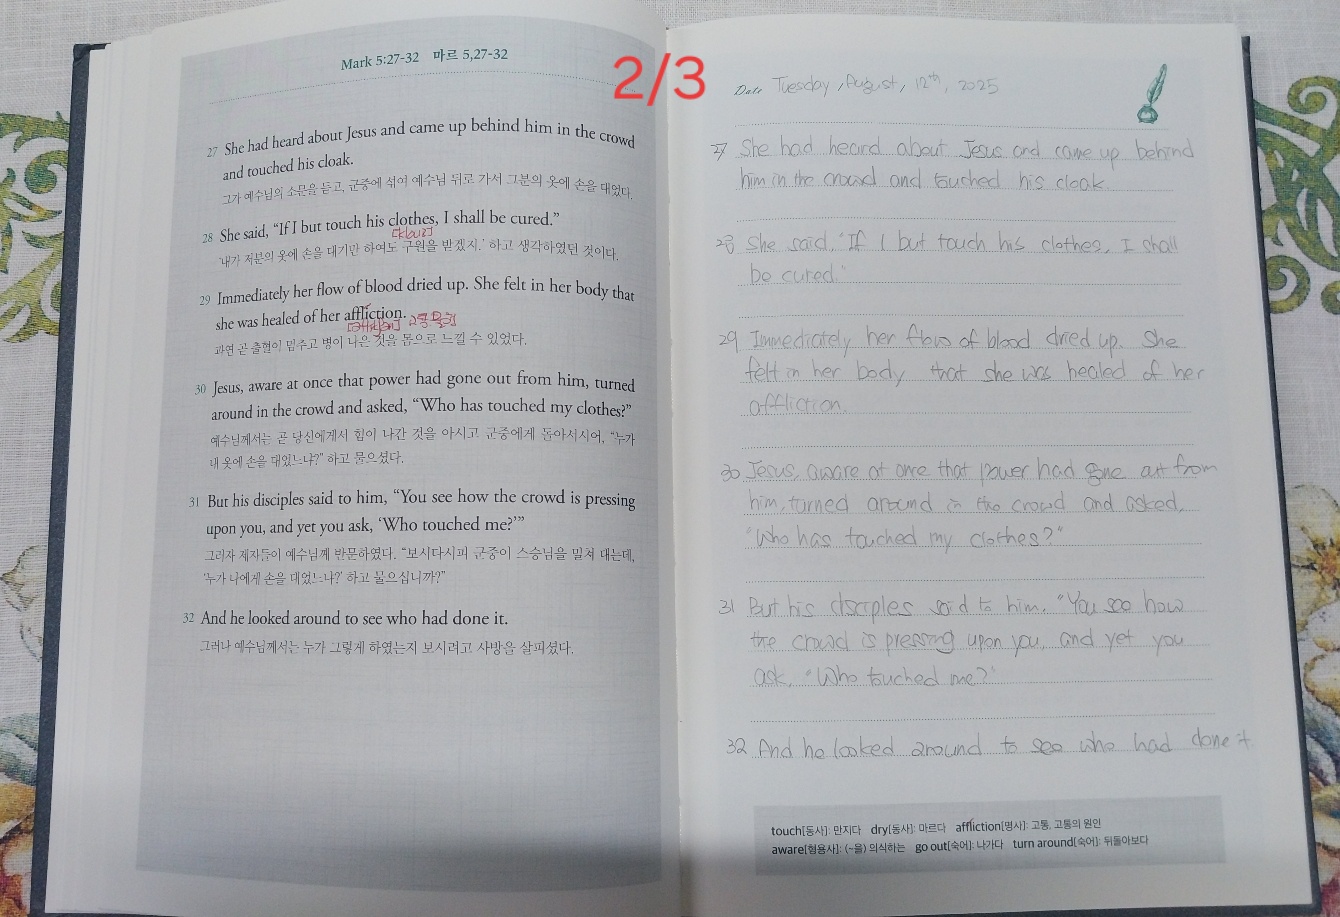 Mark 5:27-32 마르 5,27-32
27 She had heard about Jesus and came up behind him in the crowd
and touched his cloak.
그가 예수님의 소문을 듣고, 군중에 섞여 예수님 뒤로 가서 그분의 옷에 손을 대었다.
28 She said, “If I but touch his clothes, I shall be cured.”
‘내가 저분의 옷에 손을 대기만 하여도 구원을 받겠지.’ 하고 생각하였던 것이다.
29 Immediately her flow of blood dried up. She felt in her body that
she was healed of her affliction.
고통
과연 곧 출혈이 멈추고 병이 나은 것을 몸으로 느낄 수 있었다.
30 Jesus, aware at once that power had gone out from him, turned
around in the crowd and asked, “Who has touched my clothes?”
예수님께서는 곧 당신에게서 힘이 나간 것을 아시고 군중에게 돌아서시어, “누가
내 옷에 손을 대었느냐?” 하고 물으셨다.
31 But his disciples said to him, “You see how the crowd is pressing
upon you, and yet you ask, ‘Who touched me?’”
그러자 제자들이 예수님께 반문하였다. “보시다시피 군중이 스승님을 밀쳐 대는데,
‘누가 나에게 손을 대었느냐?’ 하고 물으십니까?”
32 And he looked around to see who had done it.
그러나 예수님께서는 누가 그렇게 하였는지 보시려고 사방을 살피셨다.
2/3
Date Tuesday, August, 12th, 2025
27 She had heard about Jesus and came up behind
him in the crowd and touched his cloak.
28 She said, "If I but touch his clothes, I shall
be cured."
29 Immediately her flow of blood dried up. She
felt in her body that she was healed of her
affliction.
30 Jesus, aware at one that power had gone out from
him, turned around in the crowd and asked,
"Who has touched my clothes?"
31 But his disciples said to him. "You see how
the crowd is pressing upon you, and yet you
ask, "Who touched me?"
32 And he looked around to see who had done it
touch[동사]: 만지다 dry[동사]: 마르다 affliction[명사]: 고통, 고통의 원인
aware[형용사]: (~을) 의식하는 go out[숙어]: 나가다 turn around[숙어]: 뒤돌아보다